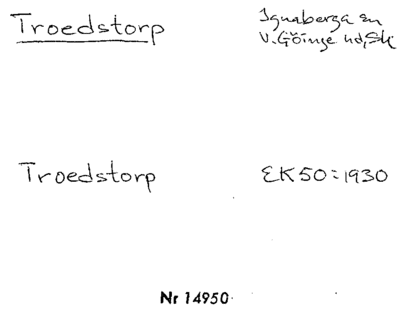 Troedstorp
Ignaberga sn
V. Göinge hd, Sk
Troedstorp
EK50=1930
Nr 14950